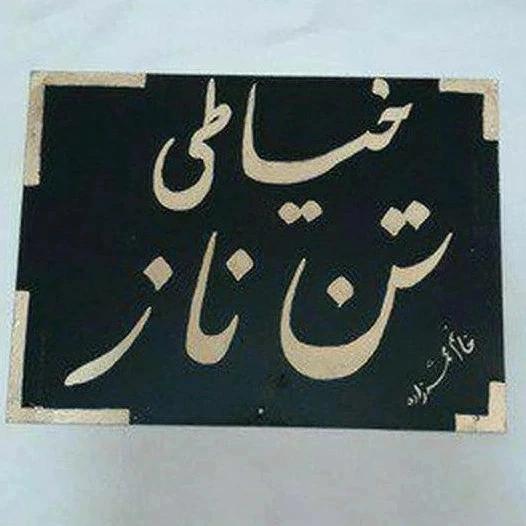 خیاطی
تن ناز
خانم